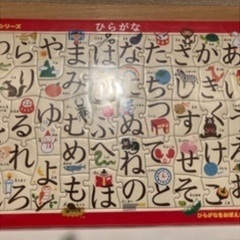 シリーズ
ひらがな
あいうえお
かきくけこ
さしすせそ
たちつてと
なにぬねの
はひふへほ
まみむめも
やゆよ
らりるれろ
ひらがなをおぼえ